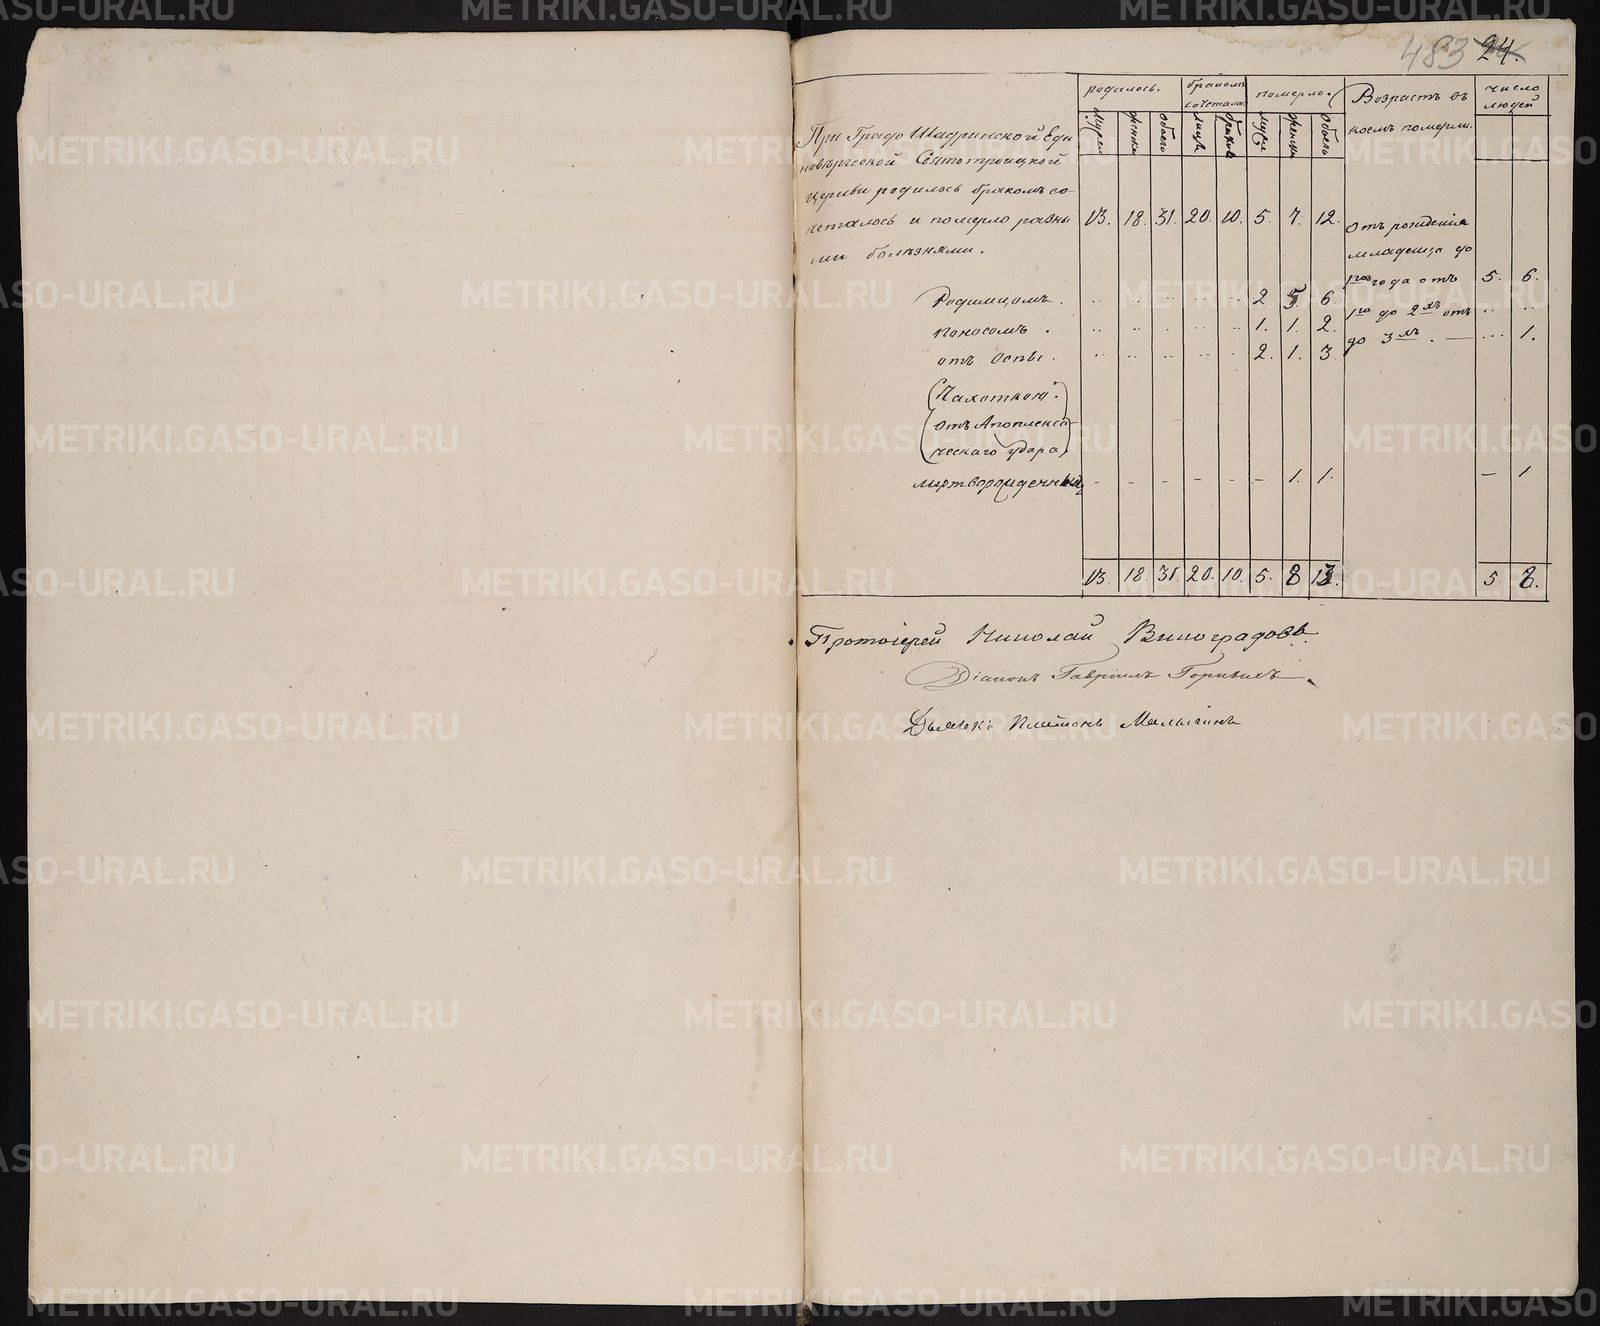 483 24.
родилось. бракомъ сочеталос. померло. Возрастъ въ коемъ померли. число людей
мужеск женска обоего лицъ браков мужск женска обоего
При Градо Шадринской Еди-
новѣрческой Святотроицкой
церкви родилось бракомъ со-
четалось и померло разны
ми болѣзнями.
13. 18. 31. 20. 10. 5. 7. 12.
Отъ рожденія
младенца до
1го года отъ 5. 6.
1го до 2хъ отъ .. ..
до 3хъ . — ... 1.
Родимцомъ . .. .. .. .. .. 2. 4. 6.
Поносомъ . .. .. .. .. .. 1. 1. 2.
отъ Оспы . .. .. .. .. .. 2. 1. 3
(Чахоткою.)
(отъ Апоплекси-
ческаго удара)
мертворожденный - - - - - - 1. 1. - 1
13. 18. 31. 20. 10. 5. 8 13. 5. 8.
Протоіерей Николай Виноградовъ.
Діаконъ Гавріилъ Горныхъ.
Дьячекъ Платонъ Малыгинъ
METRIKI.GASO-URAL.RU